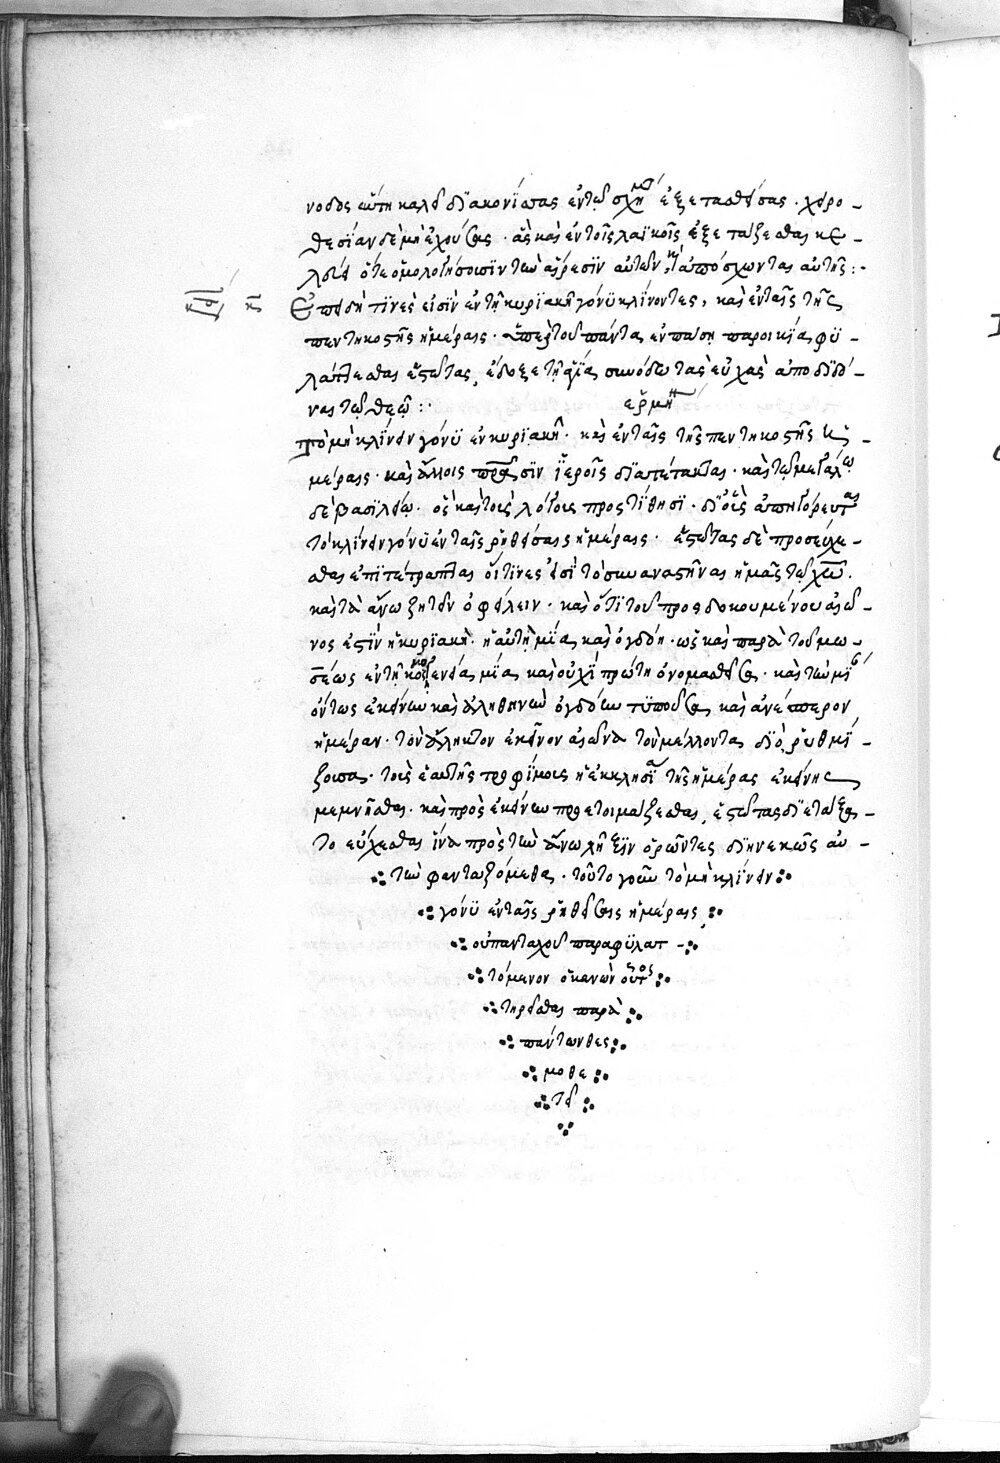 νοδος αὕτη καλεῖ διακονίσσας ἐν τῷ σχήματι ἐξετασθείσας · χειρο-
θεσίαν δὲ μὴ ἐχούσας · ἃς καὶ ἐν τοῖς λαϊκοῖς ἐξετάζεσθαι κε-
λεύει ὅτε ὁμολογήσουσιν τὴν αἵρεσιν αὐτῶν, καὶ ἀπόσχωνται αὐτῆς :·
κ Ἐπειδή τινές εἰσιν ἐν τῇ κυριακῇ γόνυ κλίνοντες, καὶ ἐν ταῖς τῆς
πεντηκοστῆς ἡμέραις · ὑπὲρ τοῦ πάντα ἐν πάσῃ παροικίᾳ φυ-
λάττεσθαι ἑστῶτας, ἔδοξε τῇ ἁγίᾳ συνόδῳ τὰς εὐχὰς ἀποδιδό-
ναι τῷ θεῷ :· ἑρμη
Τὸ μὴ κλίνειν γόνυ ἐν κυριακῇ · καὶ ἐν ταῖς τῆς πεντηκοστῆς ἡ-
μέραις · καὶ ἄλλοις πράσιν ἱεροῖς διατέτακται · καὶ τῷ μεγάλῳ
δὲ βασιλείῳ · ὃς καὶ τοὺς λόγους προστίθησι · δι' οὓς ἀπηγόρευται
τὸ κλίνειν γόνυ ἐν ταῖς ῥηθείσαις ἡμέραις · ἑστῶτας δὲ προσεύχε-
σθαι ἐπιτέτραπται οἵτινές εἰσι τὸ συναναστῆναι ἡμᾶς τῷ χω ·
καὶ τὰ ἄνω ζητεῖν ὀφείλειν · καὶ ὅτι τοῦ προσδοκουμένου αἰῶ-
νος ἐστὶν ἡ κυριακὴ · ἡ αὐτὴ μία καὶ ὀγδόη · ὡς καὶ παρὰ τοῦ μω-
σέως ἐν τῇ κοσμογενείᾳ μία καὶ οὐχὶ πρώτη ὀνομασθεῖσα · καὶ τὴν μίαν
ὄντως ἐκείνην καὶ ἀληθινὴν ὀγδόην τυποῦσα καὶ ἀνέσπερον
ἡμέραν · τὸν ἄληκτον ἐκεῖνον αἰῶνα τὸν μέλλοντα διὸ ῥυθμί-
ζουσα · τοὺς ἑαυτῆς τροφίμους ἡ ἐκκλησία τῆς ἡμέρας ἐκείνης
μεμνῆσθαι · καὶ πρὸς ἐκείνην προετοιμάζεσθαι, ἑστῶτας διετάξα-
το εὔχεσθαι ἵνα πρὸς τὴν ἄνω λῆξιν ὁρῶντες διηνεκῶς αὐ-
τὴν φανταζόμεθα · τοῦτο γοῦν τὸ μὴ κλίνειν
γόνυ ἐν ταῖς ῥηθείσαις ἡμέραις,
οὐ πανταχοῦ παραφυλατ-
τόμενον ὁ κανὼν οὗτος
τηρεῖσθαι παρὰ
πάντων θεσ
μοθε
τεῖ